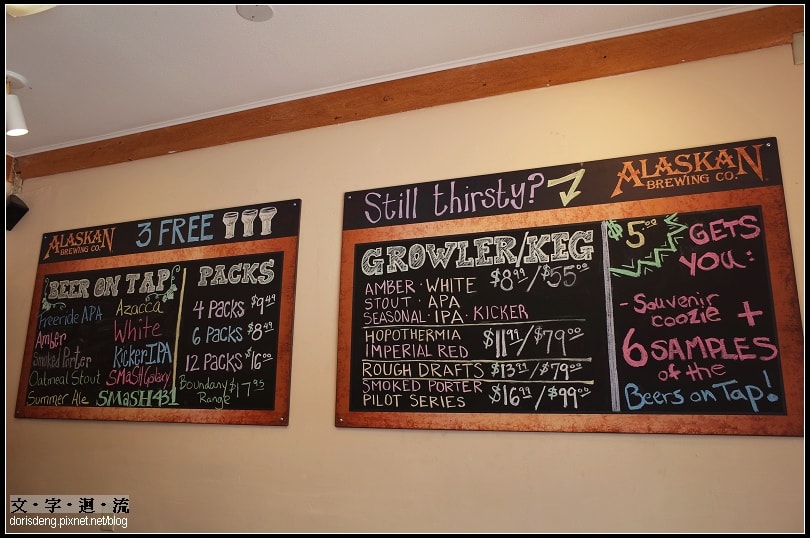 ALASKAN
BREWING CO.
3 FREE
BEER ON TAP
Freeride APA
Amber
Smoked Porter
Oatmeal Stout
Summer Ale
Azacca
White
Kicker IPA
SMaSH Galaxy
SMaSH 431
PACKS
4 PACKS $9.49
6 PACKS $8.49
12 PACKS $16.00
Boundary Range $17.95
Still thirsty?
ALASKAN
BREWING CO.
GROWLER/KEG
AMBER · WHITE $8.99/$55.00
STOUT · APA
SEASONAL · IPA · KICKER
HOPOTHERMIA $11.99/$79.00
IMPERIAL RED
ROUGH DRAFTS $13.99/$79.00
SMOKED PORTER $16.99/$99.00
PILOT SERIES
$5.00 GETS
YOU:
- Souvenir
coozie +
6 SAMPLES
of the
Beers on Tap!
文·字·迴·流
dorisdeng.pixnet.net/blog